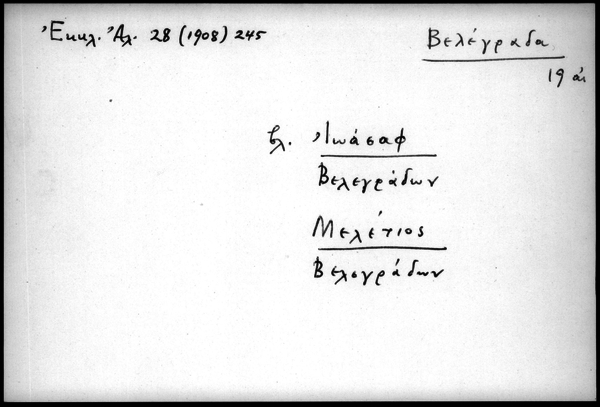 Ἐκκλ. Ἀλ. 28 (1908) 245
Βελέγραδα
19 αἰ
βλ. Ἰωάσαφ
Βελεγράδων
Μελέτιος
Βελεγράδων